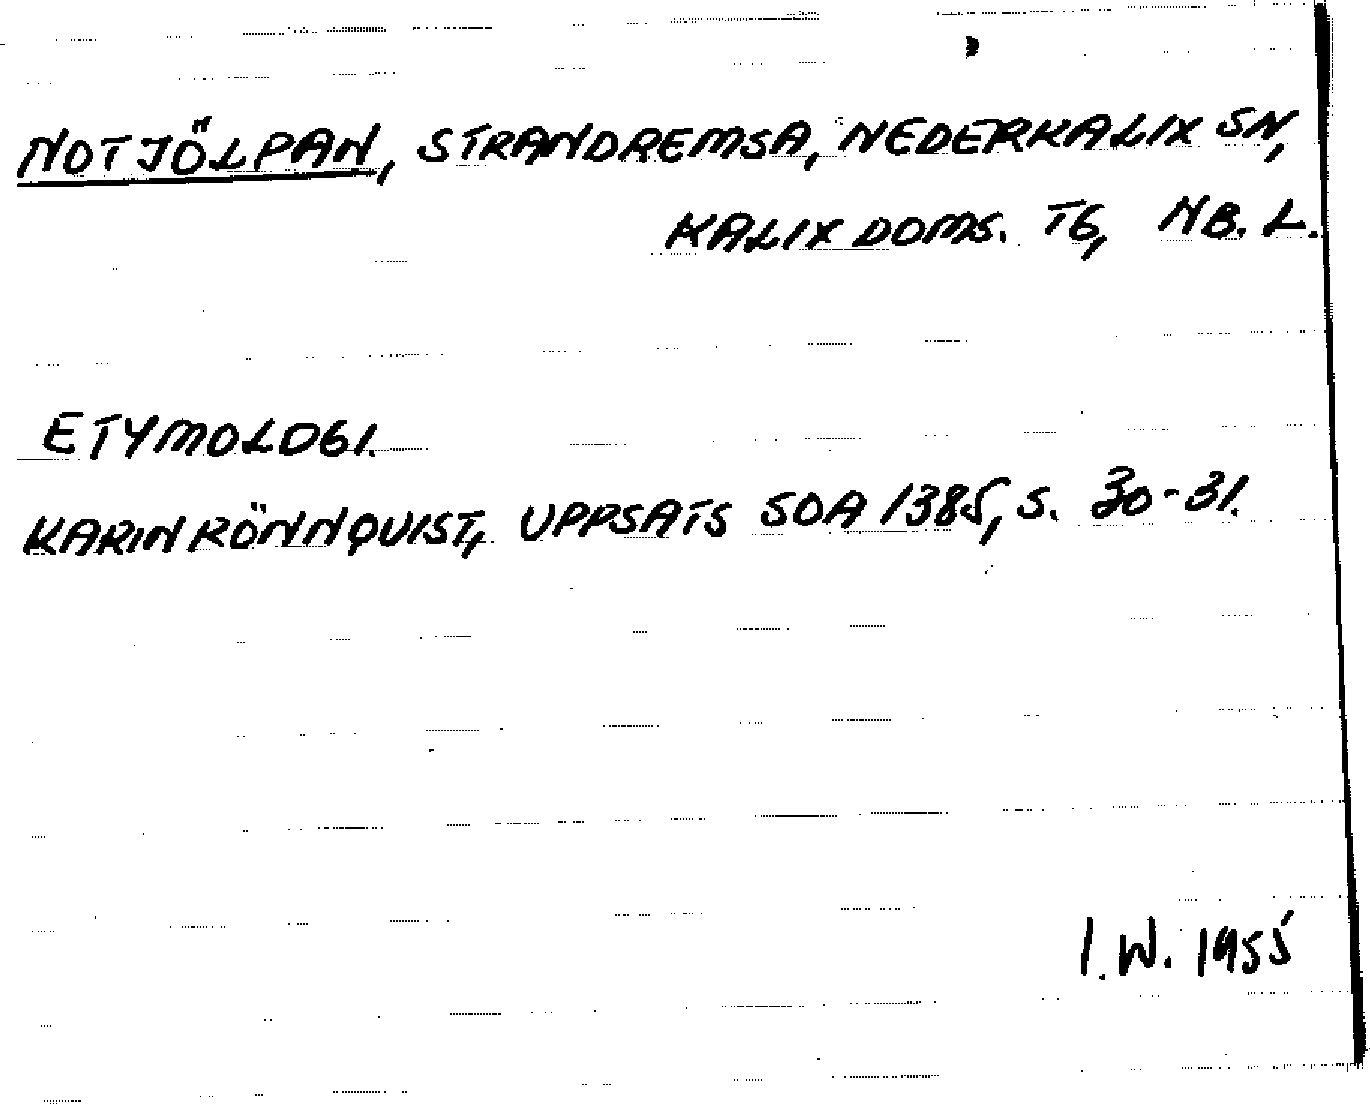 NOTJÖLPAN, STRANDREMSA, NEDERKALIX SN,
KALIX DOMS. TG, NB. L.
ETYMOLOGI.
KARIN RÖNNQUIST, UPPSATS SOA 1385, S. 30-31.
I. W. 1955